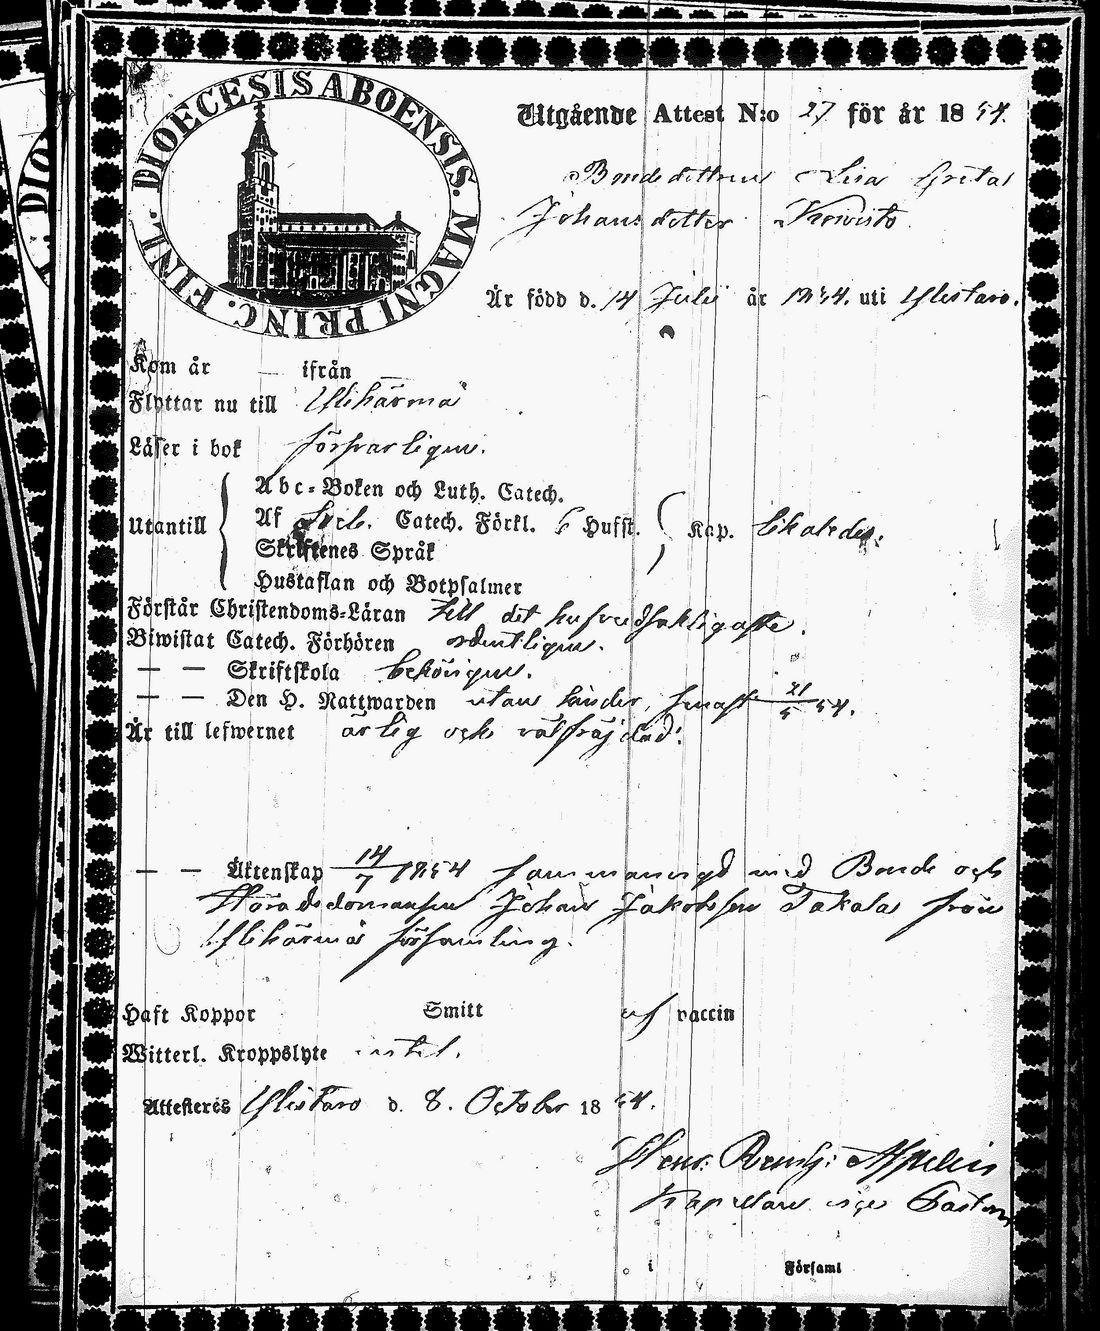 DIOECESIS ABOENSIS. MAGNI PRINC. FINL.
Utgående Attest N:o 27 för år 1854.
Bondedottren Lisa Greta
Johansdotter Koivisto
Är född d. 14 Julii år 1834. uti Ylistaro.
Kom år — ifrån —
Flyttar nu till Ylihärmä
Läser i bok försvarligen.
Abc-Boken och Luth. Catech.
Utantill Af Catech. Förkl. 6 Hufst. Kap.
Skriftenes Språk
Hustaflan och Botpsalmer
Förstår Christendoms-Läran till det hufvudsakligaste.
Biwistat Catech. Förhören ordentligen.
— — Skriftskola behörigen.
— — Den H. Nattwarden utan hinder, senast 21/5 54.
Är till lefwernet ärlig och välfräjdad.
— — Äktenskap 14/7 1854 sammanvigd med Bonde och
Häradsdomaren Johan Jakobsson Takala från
Ylihärmä församling.
Haft Koppor Smitt af vaccin
Witterl. Kroppslyte intet.
Attesteres Ylistaro d. 8. October 1854.
Henr. Reinh: Appelius
Kapellan Pastor
i Församl